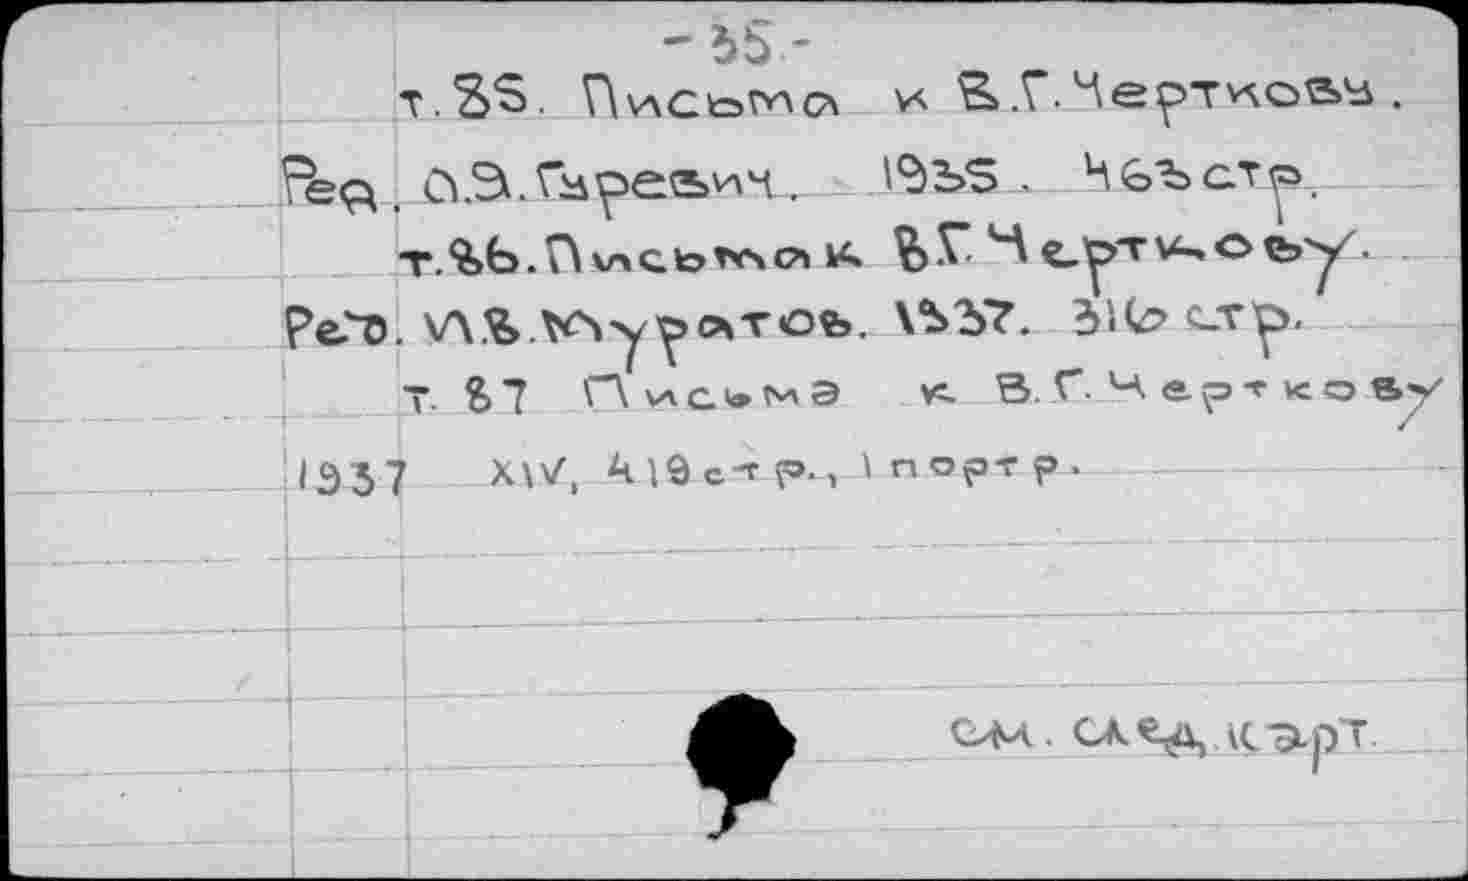 - 35 -
т. 85. Письма к В.Г. Черткову.
Ред. А.Э. Гуревич. 1935. 463 стр.
т. 86. Письма к В.Г. Черткову.
Ред. И.В. Муратов. 1937. 316 стр.
т. 87 Письма к В.Г. Черткову
1937 XIV, 419 стр., 1 портр.
см. след. карт.